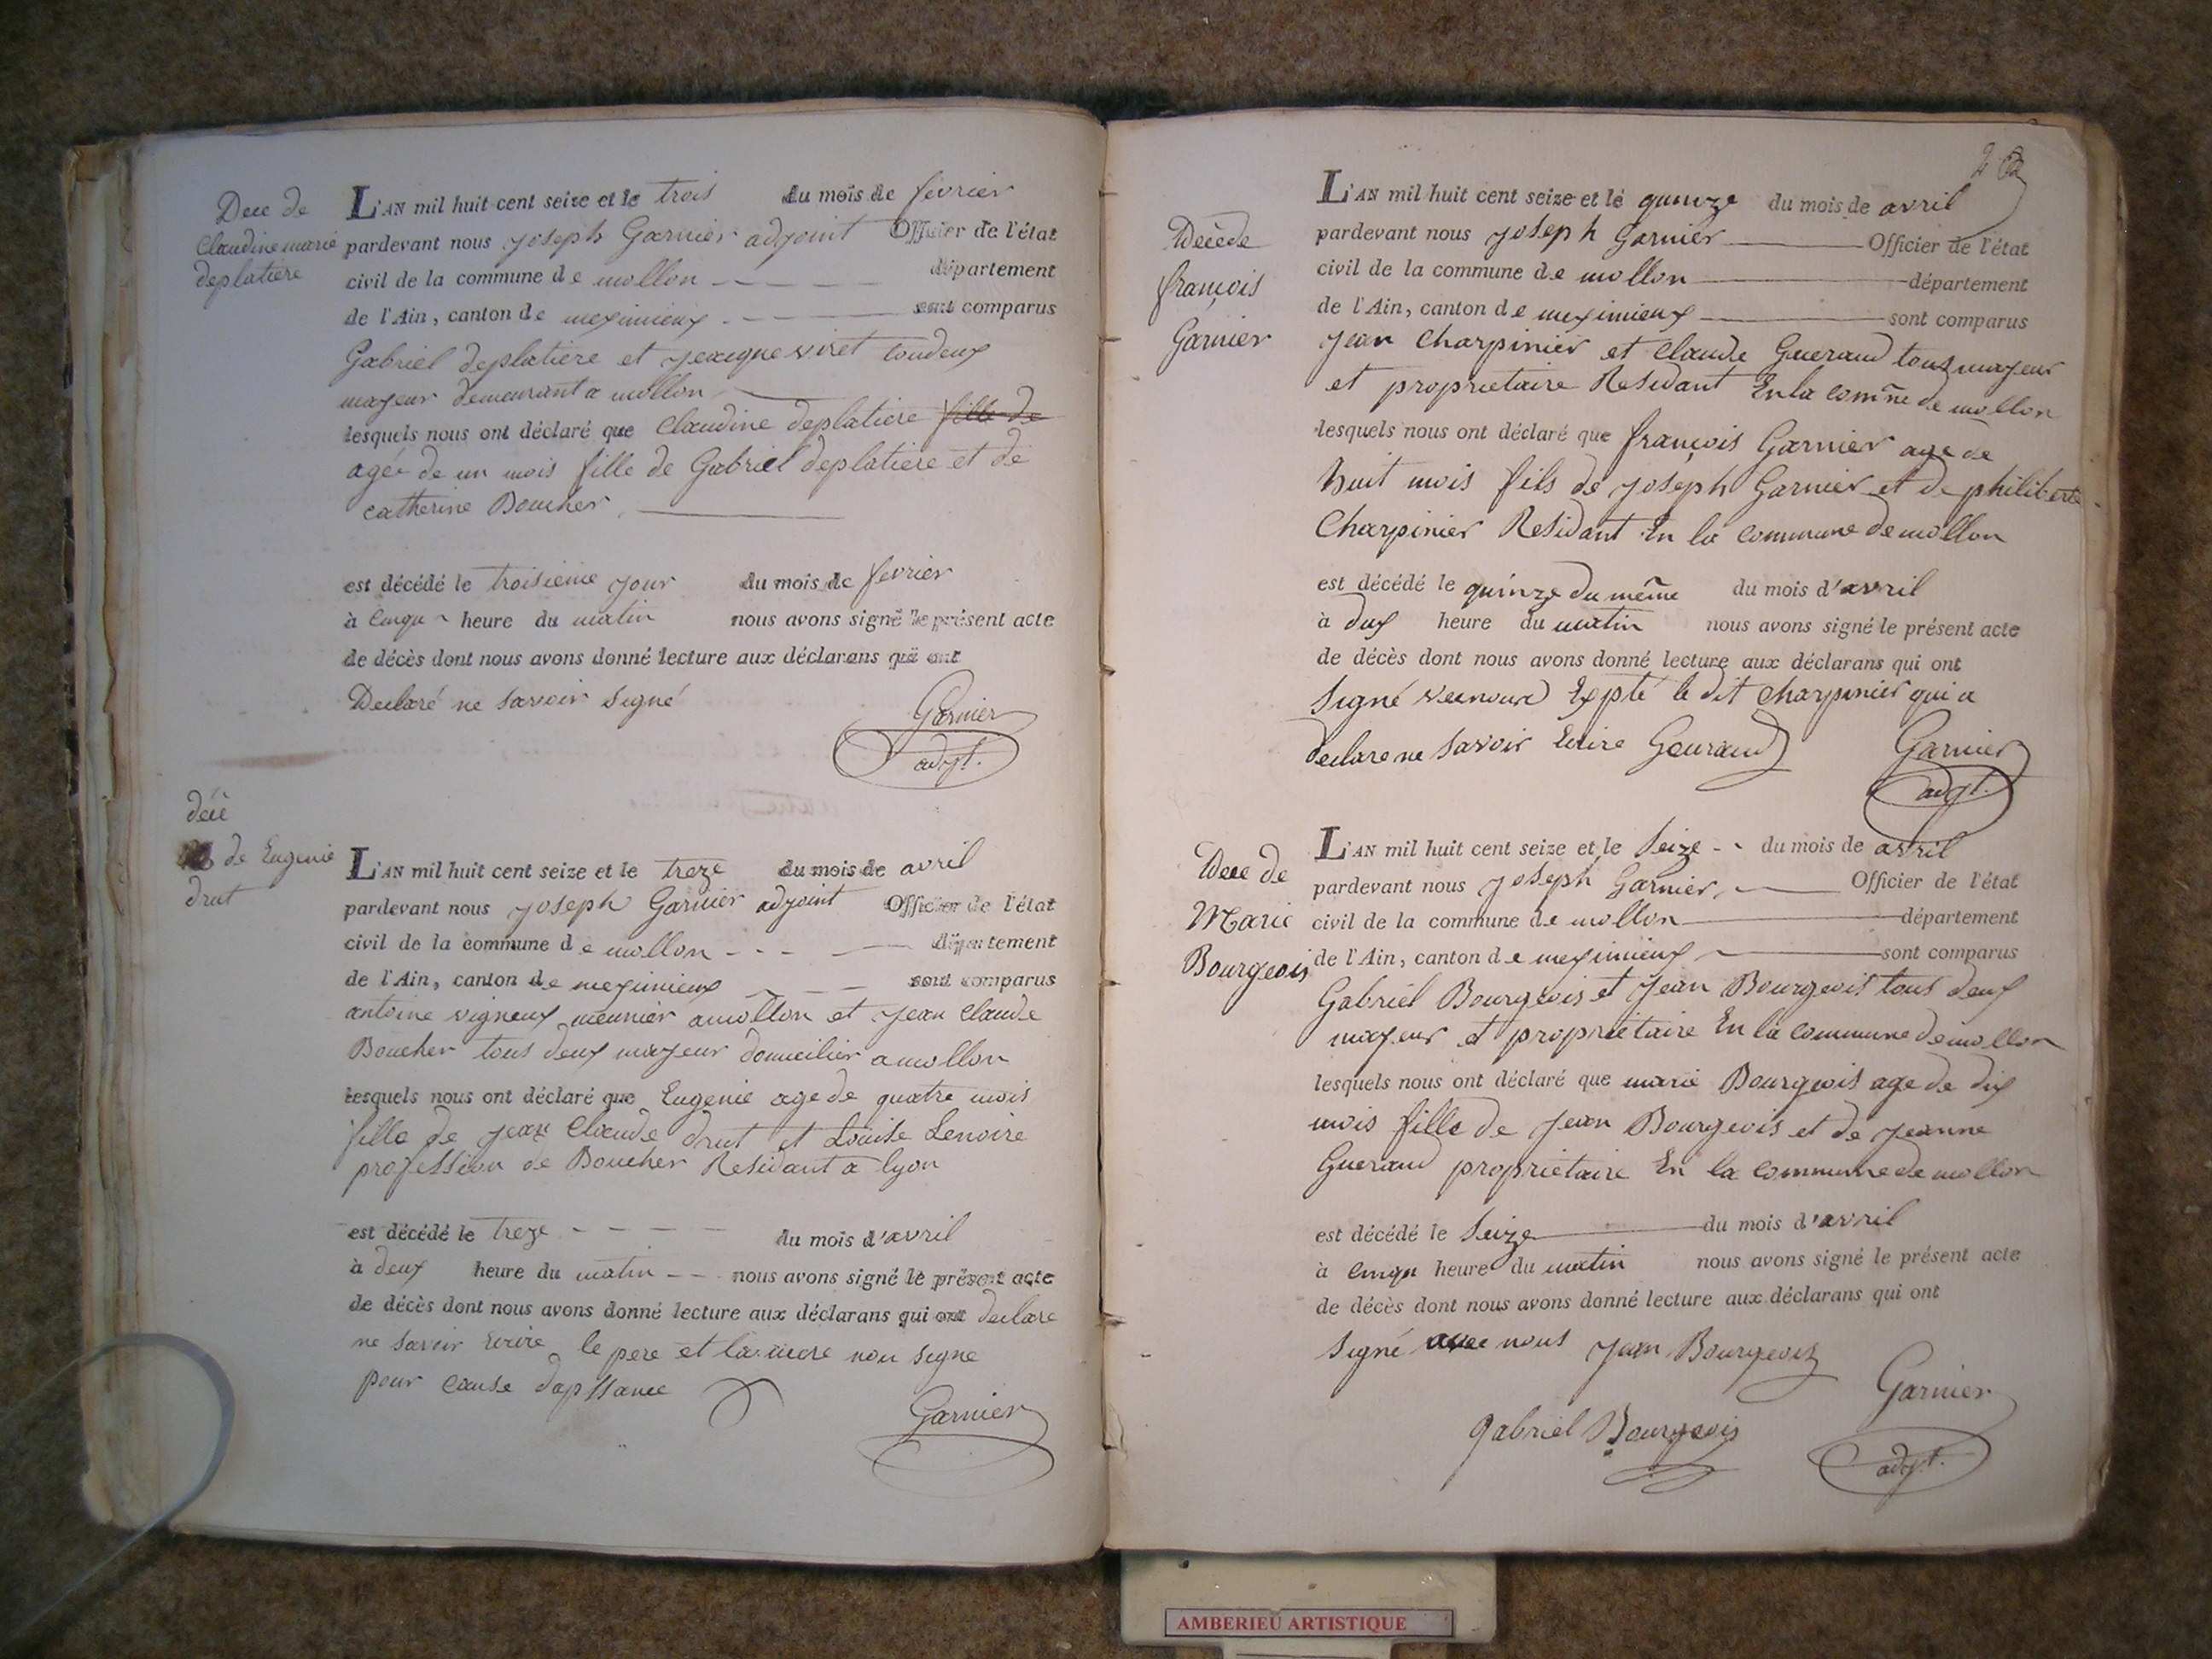 Dece de
Claudine marie
deplatiere
L'AN mil huit cent seize et le trois du mois de fevrier
pardevant nous joseph Garnier adjoint Officier de l'état
civil de la commune de mollon département
de l'Ain, canton de meximieux sont comparus
Gabriel deplatiere et jacque viret toudeux
majeur demeurant a mollon
lesquels nous ont déclaré que Claudine deplatiere fille de
agée de un mois fille de Gabriel deplatiere et de
catherine Boucher
est décédé le troisieme jour du mois de fevrier
à cinqu heure du matin nous avons signé le présent acte
de décès dont nous avons donné lecture aux déclarans qui ont
Declaré ne savoir signé
Garnier
adjt.
décè
de Eugenie
drut
L'AN mil huit cent seize et le treze du mois de avril
pardevant nous joseph Garnier adjoint Officier de l'état
civil de la commune de mollon département
de l'Ain, canton de meximieux sont comparus
antoine vigneux meunier amollon et jean Claude
Boucher tous deux majeur domicilier amollon
lesquels nous ont déclaré que Eugenie age de quatre mois
fille de jean Claude drut et Louise Lenoire
profession de Boucher Residant a lyon
est décédé le treze du mois d'avril
à deux heure du matin nous avons signé le présent acte
de décès dont nous avons donné lecture aux déclarans qui ont declare
ne savoir ecrire le pere et la mere non signe
pour cause dapssance
Garnier
2
Decede
françois
Garnier
L'AN mil huit cent seize et le quinze du mois de avril
pardevant nous joseph Garnier Officier de l'état
civil de la commune de mollon département
de l'Ain, canton de meximieux sont comparus
jean Charpinier et Claude Gueraud tous majeur
et proprietaire Residant En la comñe de mollon
lesquels nous ont déclaré que françois Garnier age de
huit mois fils de joseph Garnier et de philiberte
Charpinier Residant En la commune de mollon
est décédé le quinze du même du mois d'avril
à dix heure du matin nous avons signé le présent acte
de décès dont nous avons donné lecture aux déclarans qui ont
signé Expté le dit charpinier qui a
declare ne savoir Ecrire Geuraud
Garnier
adjt.
Dece de
Marie
Bourgeois
L'AN mil huit cent seize et le seize du mois de avril
pardevant nous joseph Garnier Officier de l'état
civil de la commune de mollon département
de l'Ain, canton de meximieux sont comparus
Gabriel Bourgeois et jean Bourgeois tous deux
majeur et proprietaire En la commune de mollon
lesquels nous ont déclaré que marie Bourgeois age de dix
mois fille de jean Bourgeois et de jeanne
Gueraud proprietaire En la commune de mollon
est décédé le seize du mois d'avril
à cinqu heure du matin nous avons signé le présent acte
de décès dont nous avons donné lecture aux déclarans qui ont
signé avec nous jean Bourgeois
Garnier
gabriel Bourgeois
adjt.
AMBERIEU ARTISTIQUE